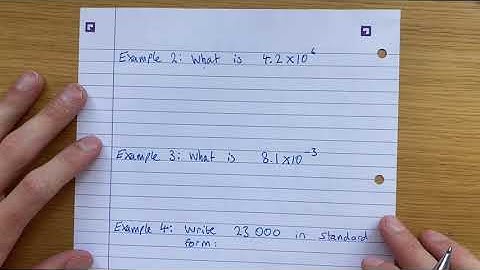 Example 2: What is 4.2×10⁶
Example 3: What is 8.1×10⁻³
Example 4: Write 23 000 in standard
form: